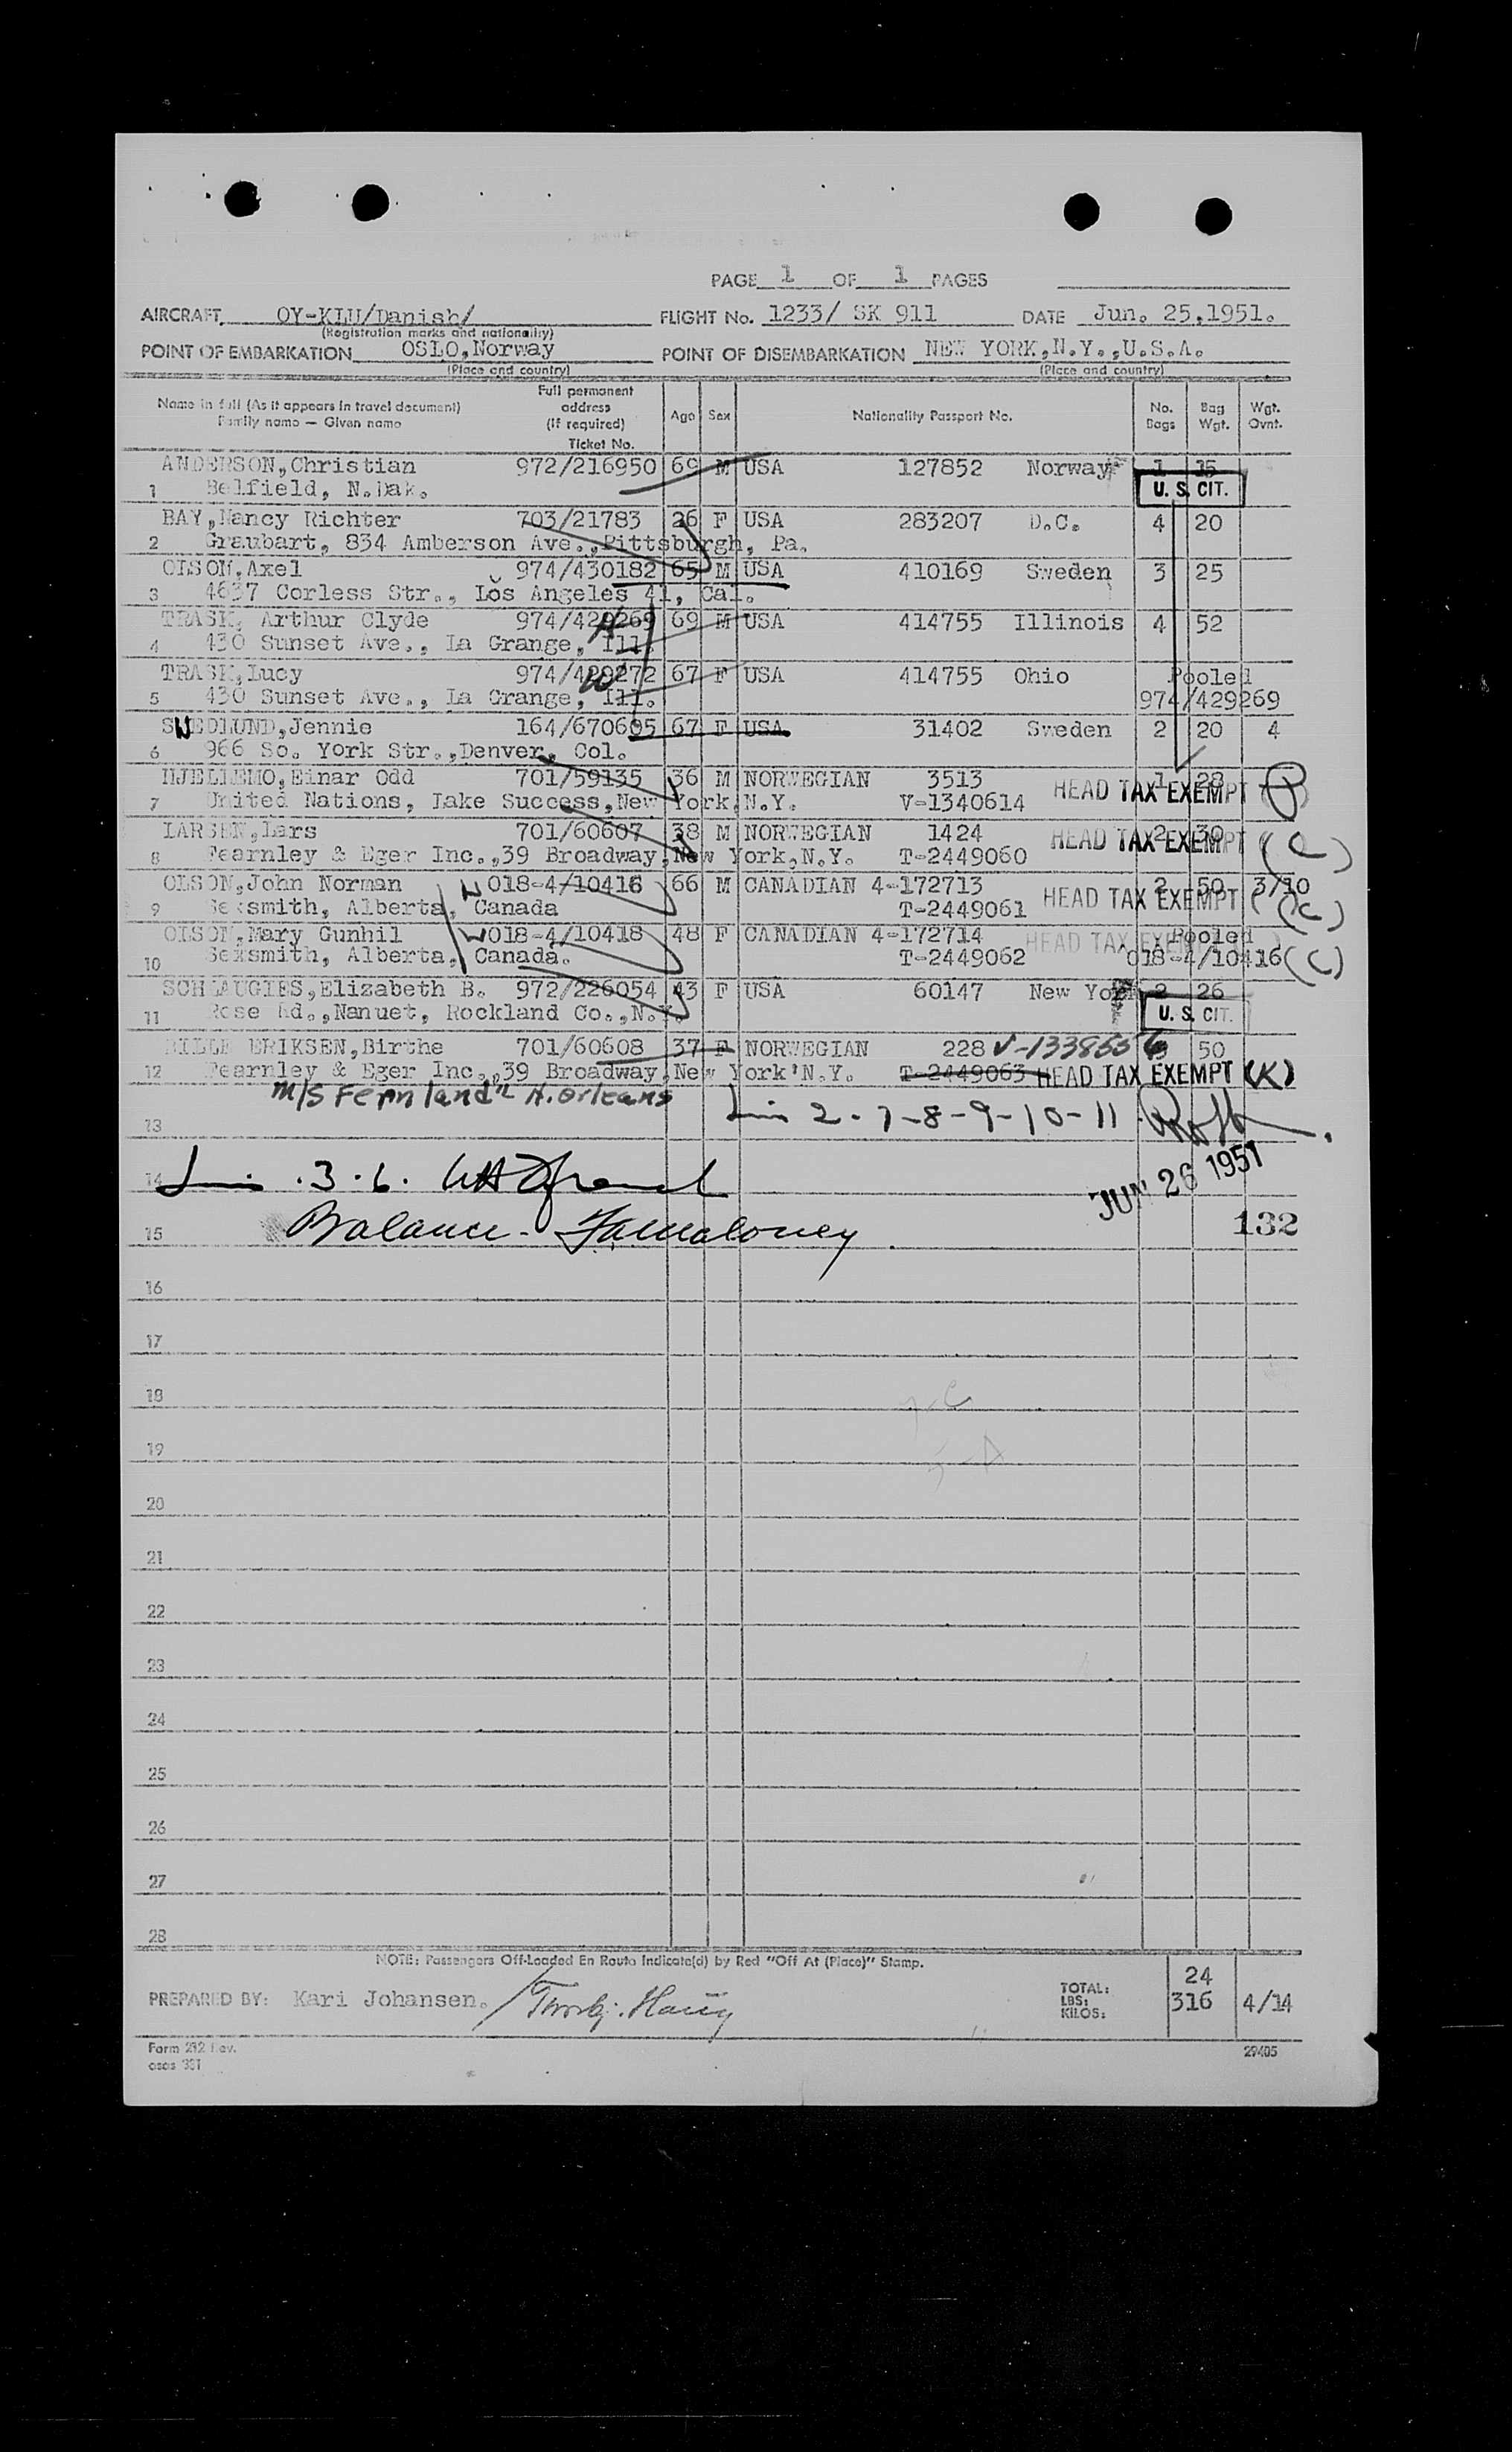 PAGE 1 OF 1 PAGES
AIRCRAFT OY-KLU/Danish/ FLIGHT No. 1233/ SK 911 DATE Jun. 25,1951.
(Registration marks and nationality)
POINT OF EMBARKATION OSLO,Norway POINT OF DISEMBARKATION NEW YORK,N.Y.,U.S.A.
(Place and country) (Place and country)
Name in full (As it appears in travel document) Family name — Given name Full permanent address (If required) Ticket No. Age Sex Nationality Passport No. No. Bags Bag Wgt. Wgt. Ovnt.
ANDERSON,Christian 972/216950 69 M USA 127852 Norway 1 15
1 Belfield, N.Dak. U. S. CIT.
BAY,Nancy Richter 703/21783 26 F USA 283207 D.C. 4 20
2 Graubart, 834 Amberson Ave.,Pittsburgh, Pa.
OLSON,Axel 974/430182 65 M USA 410169 Sweden 3 25
3 4637 Corless Str., Los Angeles 41, Cal.
TRASK, Arthur Clyde 974/429269 69 M USA 414755 Illinois 4 52
4 430 Sunset Ave., La Grange, Ill.
TRASK,Lucy 974/429272 67 F USA 414755 Ohio Pooled
5 430 Sunset Ave., La Grange, Ill. 974/429269
SWEDLUND,Jennie 164/670605 67 F USA 31402 Sweden 2 20 4
6 966 So. York Str.,Denver, Col.
HJELLEMO,Einar Odd 701/59135 36 M NORWEGIAN 3513 HEAD TAX EXEMPT 1 28
7 United Nations, Lake Success,New York,N.Y. V-1340614
LARSEN,Lars 701/60607 38 M NORWEGIAN 1424 HEAD TAX EXEMPT 2 30 (C)
8 Fearnley & Eger Inc.,39 Broadway,New York,N.Y. T-2449060
OLSON,John Norman 018-4/10416 66 M CANADIAN 4-172713 HEAD TAX EXEMPT 2 50 3/10
9 Sexsmith, Alberta, Canada T-2449061 (C)
OLSON,Mary Gunhil 018-4/10418 48 F CANADIAN 4-172714 HEAD TAX EXEMPT Pooled
10 Sexsmith, Alberta, Canada. T-2449062 018-4/10416 (C)
SCHLAUGIES,Elizabeth B. 972/226054 43 F USA 60147 New York 2 26
11 Rose Rd.,Nanuet, Rockland Co.,N.Y. U. S. CIT.
BILLE ERIKSEN,Birthe 701/60608 37 F NORWEGIAN 228 V-1338656 3 50
12 Fearnley & Eger Inc.,39 Broadway,New York'N.Y. T-2449063 HEAD TAX EXEMPT (K)
M/S Fernland" N. Orleans
13 Lin 2-7-8-9-10-11
14 Lin .3.6. JUN 26 1951
15 Balance - 132
16
17
18
19
20
21
22
23
24
25
26
27
28
NOTE: Passengers Off-Loaded En Route Indicate(d) by Red "Off At (Place)" Stamp.
PREPARED BY: Kari Johansen. TOTAL: 24
LBS: KILOS: 316 4/14
Form 212 Rev. 29405